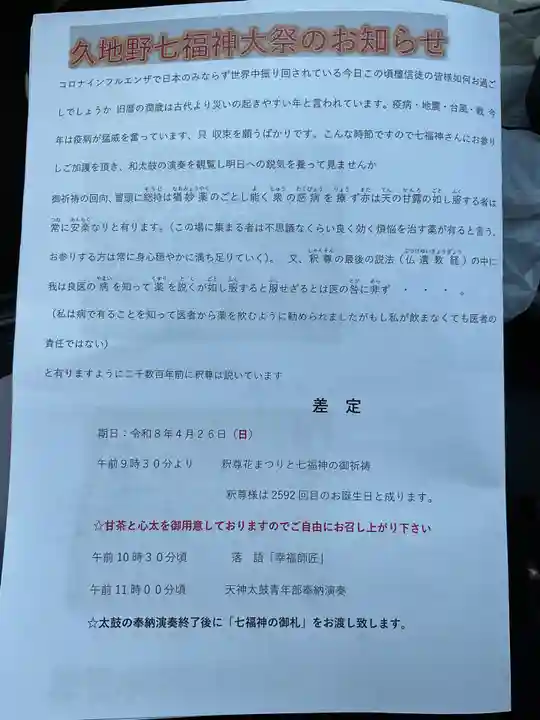 久地野七福神大祭のお知らせ
コロナインフルエンザで日本のみならず世界中振り回されている今日この頃檀信徒の皆様如何お過ご
しでしょうか 旧暦の潤歳は古代より災いの起きやすい年と言われています。疫病・地震・台風・戦 今
年は疫病が猛威を奮っています、只 収束を願うばかりです。こんな時節ですので七福神さんにお参り
しご加護を頂き、和太鼓の演奏を観覧し明日への鋭気を養って見ませんか
御祈祷の回向、冒頭に総持は猶妙薬のごとし能く衆の惑病を療ず亦は天の甘露の如し服する者は
常に安楽なりと有ります。（この場に集まる者は不思議なくらい良く効く煩悩を治す薬が有ると言う、
お参りする方は常に身心穏やかに満ち足りていく）。 又、釈尊の最後の説法（仏遺教経）の中に
我は良医の病を知って薬を説くが如し服すると服せざるとは医の咎に非ず ・・・・。
（私は病で有ることを知って医者から薬を飲むように勧められましたがもし私が飲まなくても医者の
責任ではない）
と有りますように二千数百年前に釈尊は説いています
差 定
期日：令和８年４月２６日（日）
午前９時３０分より 釈尊花まつりと七福神の御祈祷
釈尊様は 2592 回目のお誕生日と成ります。
☆甘茶と心太を御用意しておりますのでご自由にお召し上がり下さい
午前 10 時３０分頃 落 語「幸福師匠」
午前 11 時００分頃 天神太鼓青年部奉納演奏
☆太鼓の奉納演奏終了後に「七福神の御札」をお渡し致します。